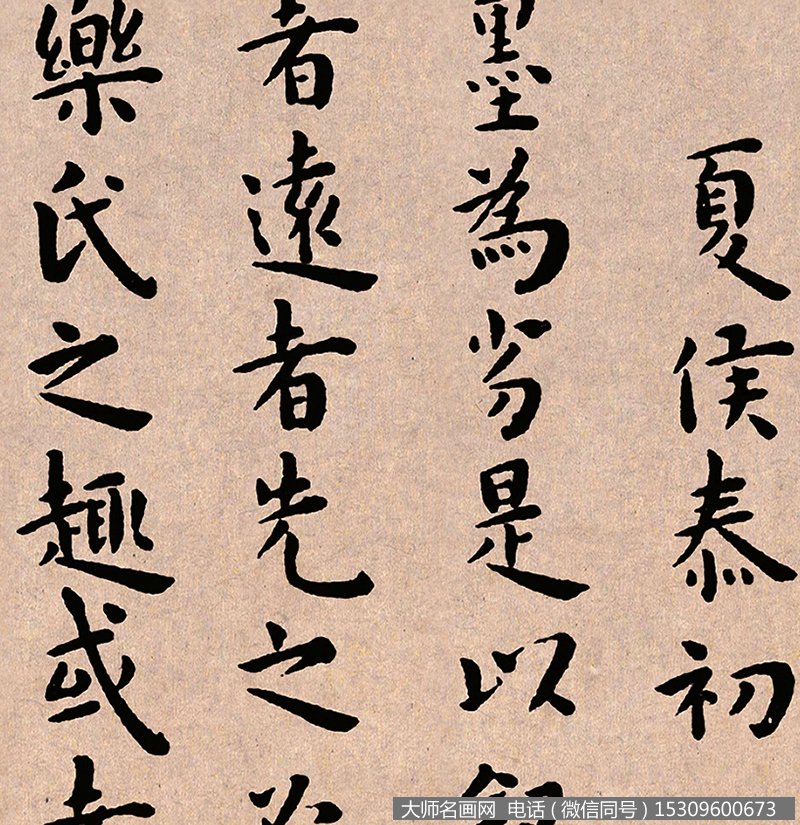 夏侯泰初
墨為劣是以
者遠者先之
樂氏之趣或
大师名画网 电话(微信同号)15309600673